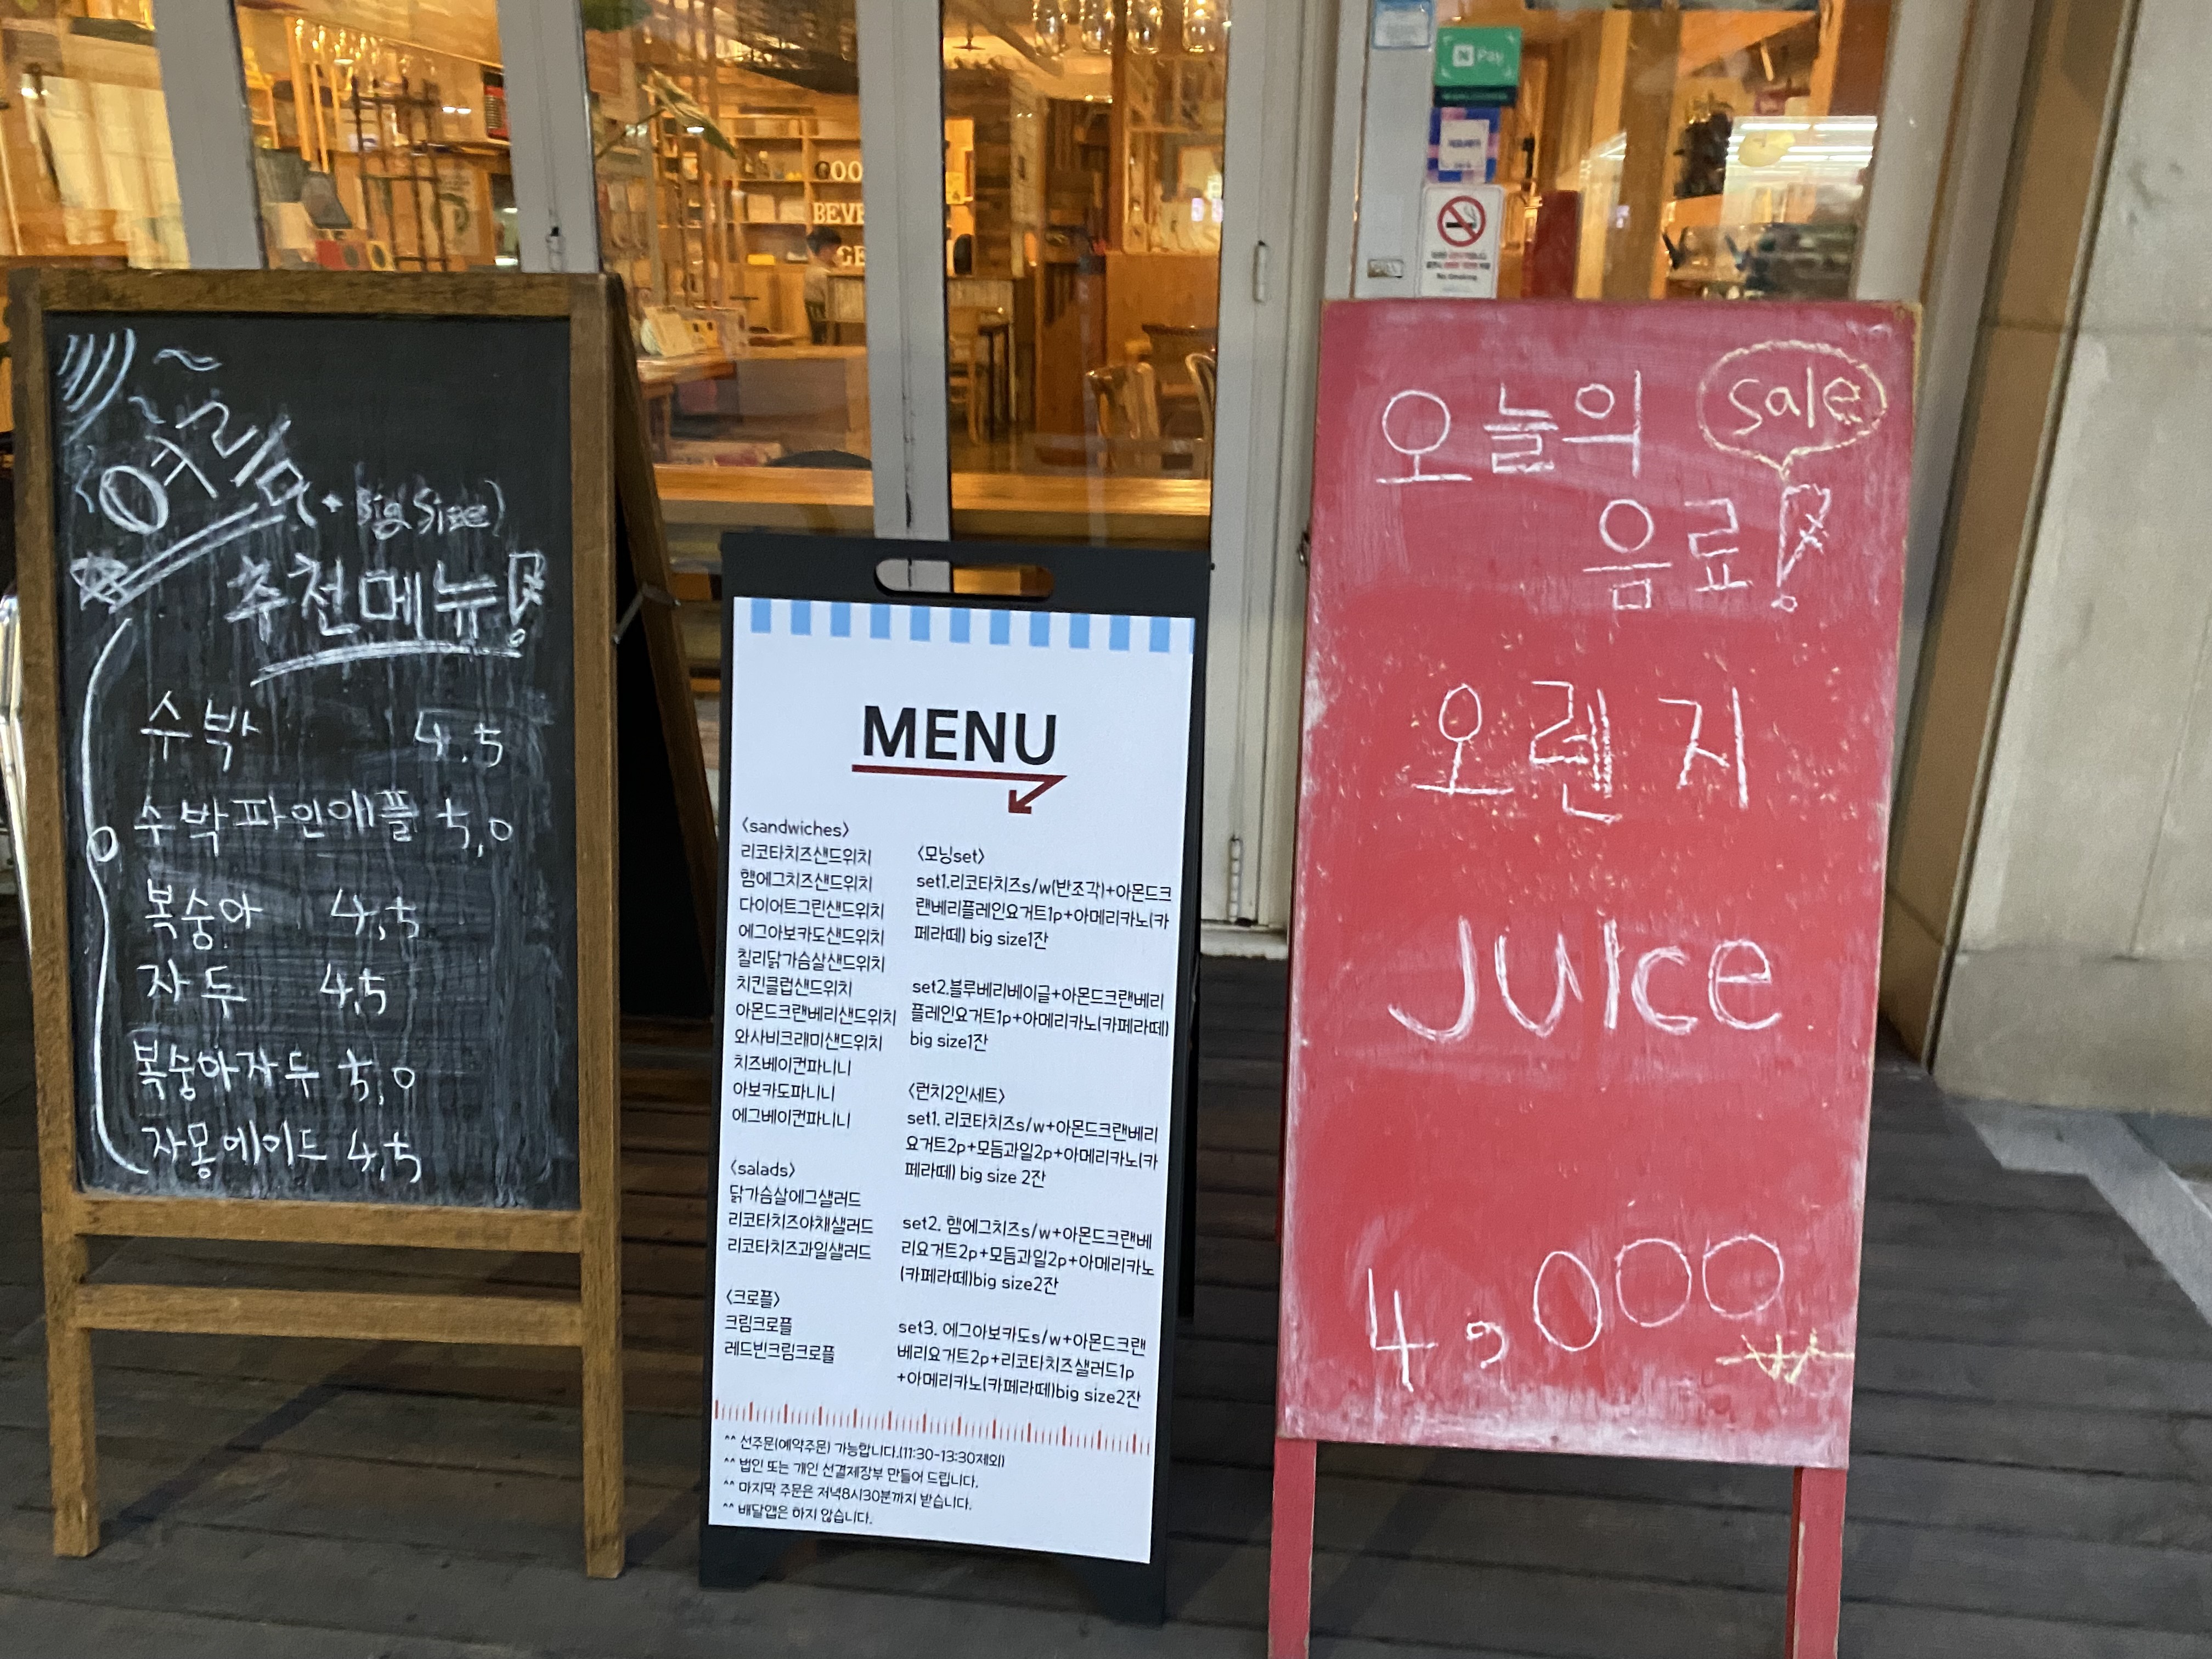 여름
Big Size)
추천메뉴!
수박 4.5
수박파인애플 5,0
복숭아 4,5
자두 4,5
복숭아자두 5,0
자몽에이드 4,5
MENU
<sandwiches>
리코타치즈샌드위치
햄에그치즈샌드위치
다이어트그린샌드위치
에그아보카도샌드위치
칠리닭가슴살샌드위치
치킨클럽샌드위치
아몬드크랜베리샌드위치
와사비크래미샌드위치
치즈베이컨파니니
아보카도파니니
에그베이컨파니니
<salads>
닭가슴살에그샐러드
리코타치즈야채샐러드
리코타치즈과일샐러드
<크로플>
크림크로플
레드빈크림크로플
<모닝set>
set1.리코타치즈s/w(반조각)+아몬드크
랜베리플레인요거트1p+아메리카노(카
페라떼) big size1잔
set2.블루베리베이글+아몬드크랜베리
플레인요거트1p+아메리카노(카페라떼)
big size1잔
<런치2인세트>
set1. 리코타치즈s/w+아몬드크랜베리
요거트2p+모듬과일2p+아메리카노(카
페라떼) big size 2잔
set2. 햄에그치즈s/w+아몬드크랜베
리요거트2p+모듬과일2p+아메리카노
(카페라떼)big size2잔
set3. 에그아보카도s/w+아몬드크랜
베리요거트2p+리코타치즈샐러드1p
+아메리카노(카페라떼)big size2잔
^^ 선주문(예약주문) 가능합니다.(11:30-13:30제외)
^^ 법인 또는 개인 선결제장부 만들어 드립니다.
^^ 마지막 주문은 저녁8시30분까지 받습니다.
^^ 배달앱은 하지 않습니다.
오늘의 sale
음료!
오렌지
JUICE
4,000
₩
N Pay
No Smoking